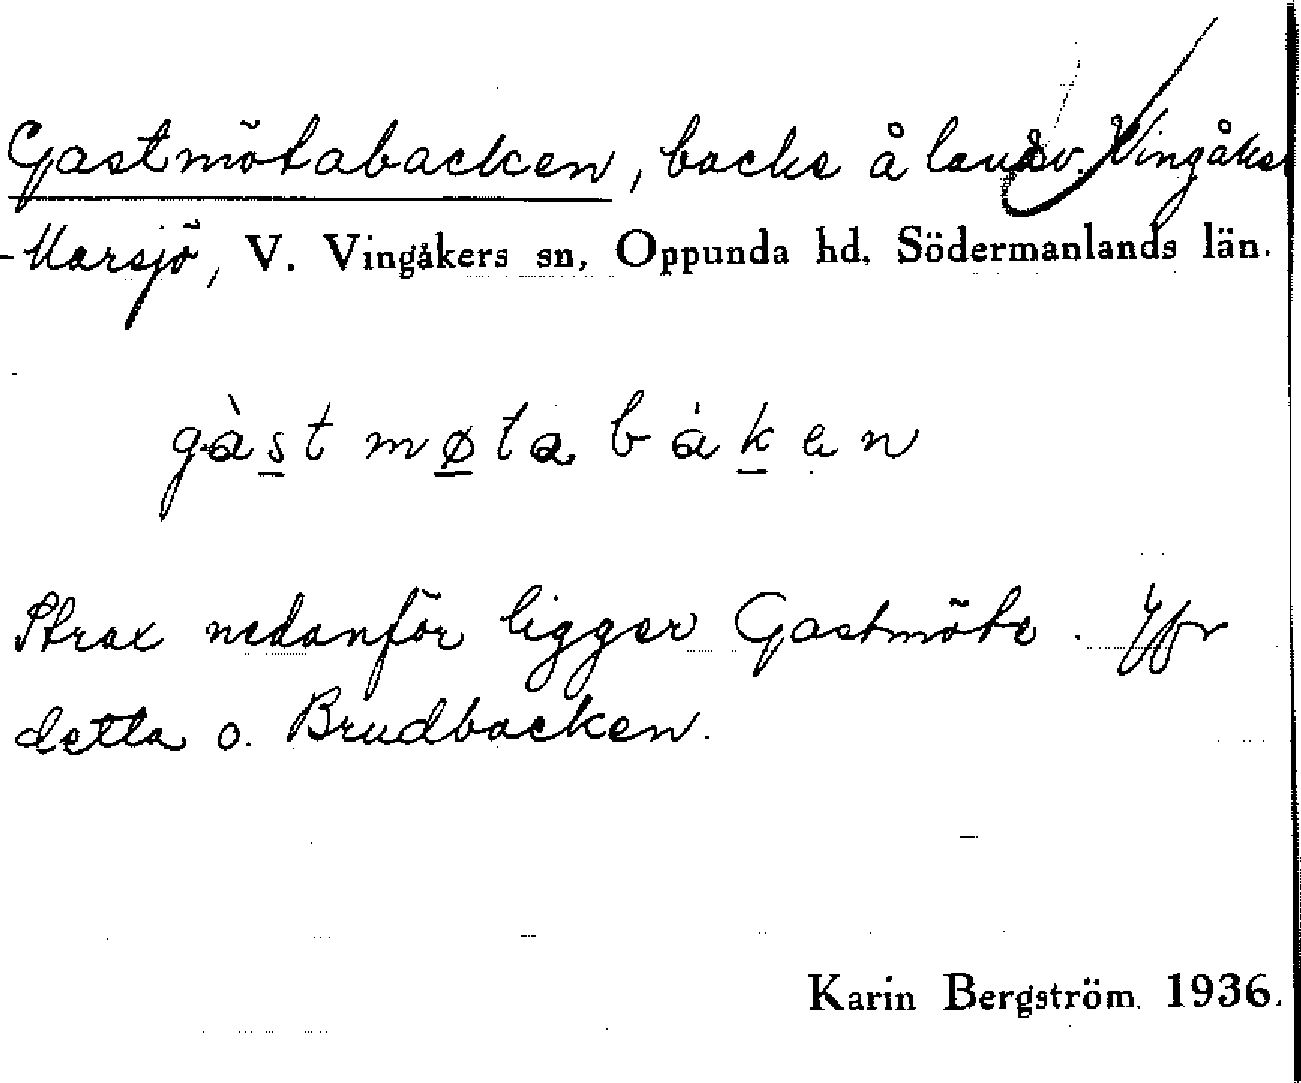 Gastmötabacken, backe å landsv. Vingåker
-Marsjö, V. Vingåkers sn, Oppunda hd, Södermanlands län.
gàstmøtabáken
Strax nedanför ligger Gastmöte. Jfr
detta o. Brudbacken.
Karin Bergström. 1936.